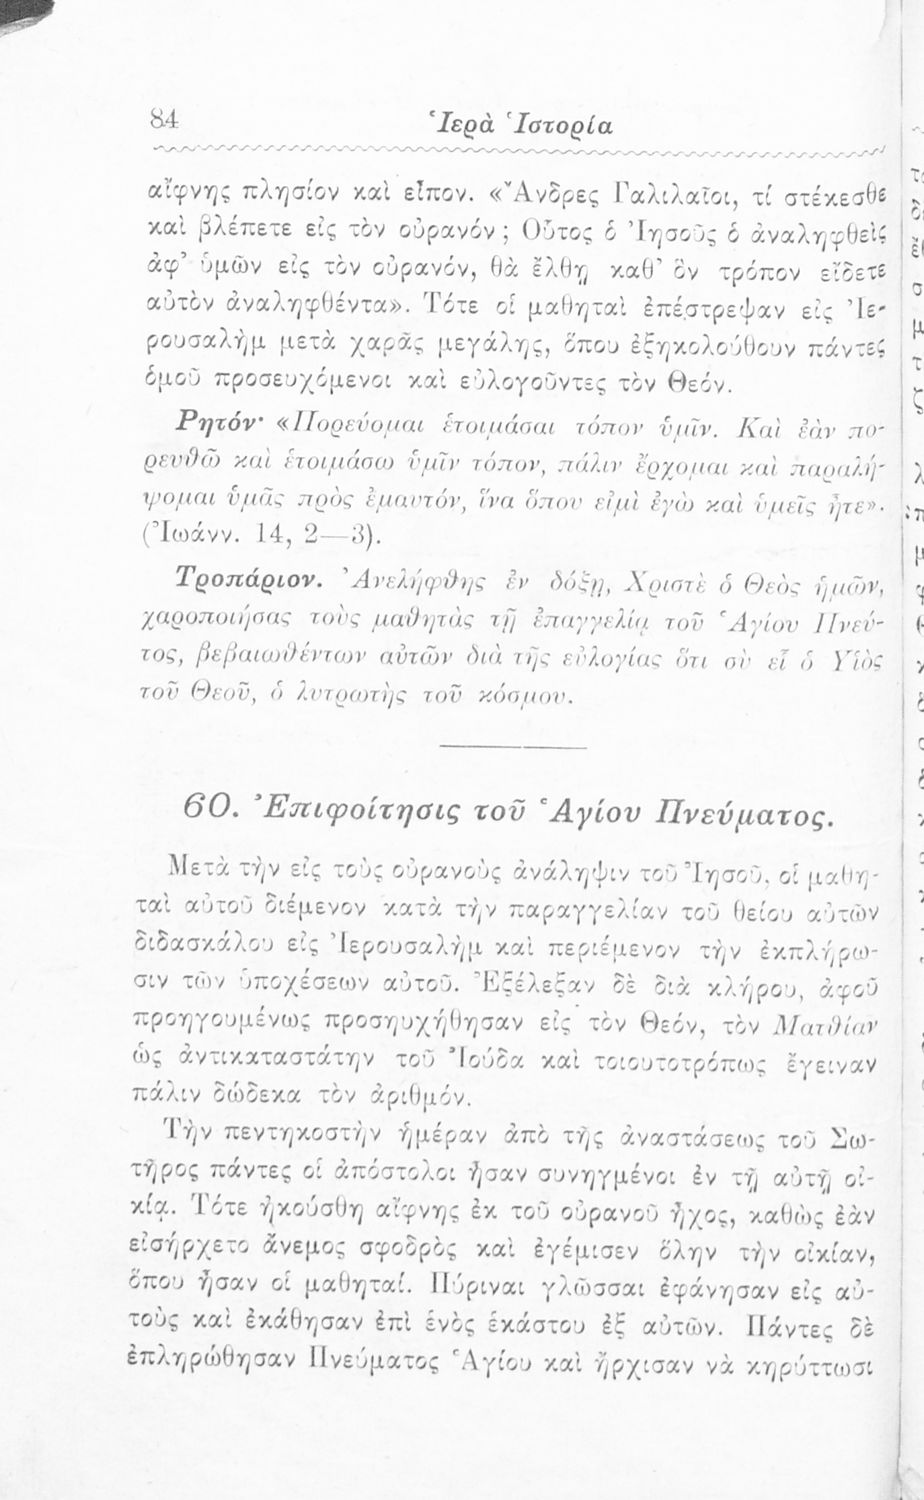 84 Ἱερὰ Ἱστορία
αἴφνης πλησίον καὶ εἶπον. «Ἄνδρες Γαλιλαῖοι, τί στέκεσθε
καὶ βλέπετε εἰς τὸν οὐρανόν; Οὗτος ὁ Ἰησοῦς ὁ ἀναληφθεὶς
ἀφ’ ὑμῶν εἰς τὸν οὐρανόν, θὰ ἔλθῃ καθ’ ὃν τρόπον εἴδετε
αὐτὸν ἀναληφθέντα». Τότε οἱ μαθηταὶ ἐπέστρεψαν εἰς Ἰε-
ρουσαλὴμ μετὰ χαρᾶς μεγάλης, ὅπου ἐξηκολούθουν πάντες
ὁμοῦ προσευχόμενοι καὶ εὐλογοῦντες τὸν Θεόν.
Ρητόν· «Πορεύομαι ἑτοιμάσαι τόπον ὑμῖν. Καὶ ἐὰν πο-
ρευθῶ καὶ ἑτοιμάσω ὑμῖν τόπον, πάλιν ἔρχομαι καὶ παραλή-
ψομαι ὑμᾶς πρὸς ἐμαυτόν, ἵνα ὅπου εἰμὶ ἐγὼ καὶ ὑμεῖς ἦτε».
(Ἰωάνν. 14, 2—3).
Τροπάριον. Ἀνελήφθης ἐν δόξῃ, Χριστὲ ὁ Θεὸς ἡμῶν,
χαροποιήσας τοὺς μαθητὰς τῇ ἐπαγγελίᾳ τοῦ Ἁγίου Πνεύ-
τος, βεβαιωθέντων αὐτῶν διὰ τῆς εὐλογίας ὅτι σὺ εἶ ὁ Υἱὸς
τοῦ Θεοῦ, ὁ λυτρωτὴς τοῦ κόσμου.
60. Ἐπιφοίτησις τοῦ Ἁγίου Πνεύματος.
Μετὰ τὴν εἰς τοὺς οὐρανοὺς ἀνάληψιν τοῦ Ἰησοῦ, οἱ μαθη-
ταὶ αὐτοῦ διέμενον κατὰ τὴν παραγγελίαν τοῦ θείου αὐτῶν
διδασκάλου εἰς Ἰερουσαλὴμ καὶ περιέμενον τὴν ἐκπλήρω-
σιν τῶν ὑποχέσεων αὐτοῦ. Ἐξέλεξαν δὲ διὰ κλήρου, ἀφοῦ
προηγουμένως προσηυχήθησαν εἰς τὸν Θεόν, τὸν Ματθίαν
ὡς ἀντικαταστάτην τοῦ Ἰούδα καὶ τοιουτοτρόπως ἔγειναν
πάλιν δώδεκα τὸν ἀριθμόν.
Τὴν πεντηκοστὴν ἡμέραν ἀπὸ τῆς ἀναστάσεως τοῦ Σω-
τῆρος πάντες οἱ ἀπόστολοι ἦσαν συνηγμένοι ἐν τῇ αὐτῇ οἰ-
κίᾳ. Τότε ἠκούσθη αἴφνης ἐκ τοῦ οὐρανοῦ ἦχος, καθὼς ἐὰν
εἰσήρχετο ἄνεμος σφοδρὸς καὶ ἐγέμισεν ὅλην τὴν οἰκίαν,
ὅπου ἦσαν οἱ μαθηταί. Πύριναι γλῶσσαι ἐφάνησαν εἰς αὐ-
τοὺς καὶ ἐκάθησαν ἐπὶ ἑνὸς ἑκάστου ἐξ αὐτῶν. Πάντες δὲ
ἐπληρώθησαν Πνεύματος Ἁγίου καὶ ἤρχισαν νὰ κηρύττωσι